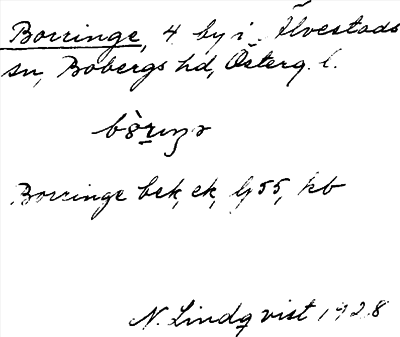 Borringe, 4 by i Älvestads
sn, Bobergs hd, Österg. l.
Borringe bek, ek, lg 55, hb
N. Lindqvist 1928